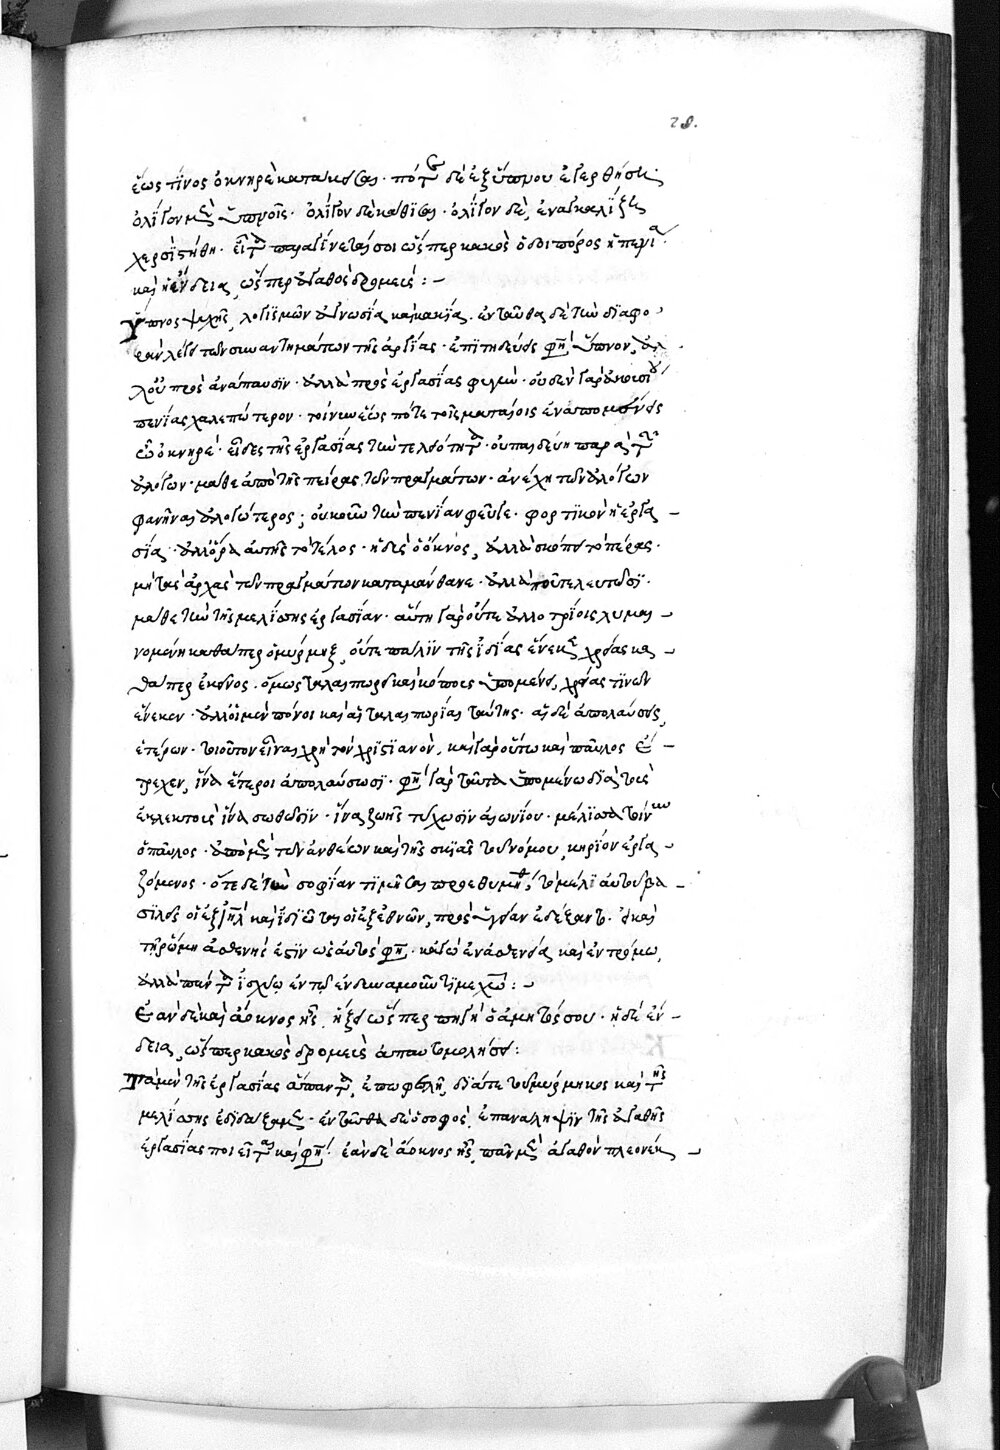 28.
ἕως τίνος ὀκνηρὲ κατάκεισαι· πότε δὲ ἐξ ὕπνου ἐγερθήσῃ·
ὀλίγον μὲν ὑπνοῖς· ὀλίγον δὲ κάθισαι· ὀλίγον δὲ, ἐναγκαλίζεις
χερσὶ στήθη· εἶτα παραγίνεταί σοι ὥσπερ κακὸς ὁδοιπόρος ἡ πενία·
καὶ ἡ ἔνδεια, ὥσπερ ἀγαθὸς δρομεύς :-
Ὕπνος ψυχῆς, λογισμῶν ἀγνωσία καὶ κακία. ἐνταῦθα δὲ τὴν διαφο
ρὰν λέγει τῶν συναντημάτων τῆς ἀργίας· ἐπιτηδεύεις φησὶ ὕπνον, ἀλ
λ' οὐ πρὸς ἀνάπαυσιν· ἀλλὰ πρὸς ἐργασίας φυγὴν· οὐδὲν γὰρ
πενίας χαλεπώτερον· τοίνυν ἕως πότε τοῖς ματαίοις ἐναπομένεις
ὦ ὀκνηρέ· εἶδες τῆς ἐργασίας τὴν τελειότητα· οὐ παιδεύῃ παρὰ τῶν
ἀλόγων· μάθε ἀπὸ τῆς πείρας τῶν πραγμάτων· ἀνέχῃ τῶν ἀλόγων
φανῆναι ἀλογώτερος; οὐκοῦν τὴν πενίαν φεῦγε· φορτικὸν ἡ ἐργα
σία· ἀλλ' ὅρα αὐτῆς τὸ τέλος· ἡδὺς ὁ ὄκνος, ἀλλὰ σκόπει τὸ πέρας·
μὴ τὰς ἀρχὰς τῶν πραγμάτων καταμάνθανε· ἀλλὰ ποῦ τελευτῶσι·
μάθε τὴν τῆς μελίσσης ἐργασίαν· αὕτη γὰρ οὔτε ἀλλοτρίοις λυμαι
νομένη καθάπερ ὁ μύρμηξ, οὔτε πάλιν τῆς ἰδίας ἕνεκεν χρείας κα
θάπερ ἐκεῖνος· ὅμως ταλαιπωρεῖ καὶ κόπους ὑπομένει, χρείας τινῶν
ἕνεκεν· ἀλλ' οἱ μὲν πόνοι καὶ αἱ ταλαιπωρίαι ταύτης· αἱ δὲ ἀπολαύσεις,
ἑτέρων· τοιοῦτον εἶναι χρὴ τὸν χριστιανὸν, καὶ γὰρ οὕτω καὶ παῦλος ἔ
τρεχεν, ἵνα ἕτεροι ἀπολαύσωσι· φησὶ γὰρ ταῦτα ὑπομένω διὰ τοὺς
ἐκλεκτοὺς ἵνα σωθῶσιν· ἵνα ζωῆς τύχωσιν αἰωνίου· μέλισσα τοίνυν
ὁ παῦλος· ἀπὸ μὲν τῶν ἀνθέων καὶ τῆς σκιᾶς τοῦ νόμου, κηρίον ἐργα
ζόμενος· ὅτε δὲ τὴν σοφίαν τιμῆσαι προεθυμήθη, τὸ μέλι αὐτοῦ βα
σιλεῖς οἱ ἐξ ἰσραὴλ καὶ ἰδιῶται οἱ ἐξ ἐθνῶν, πρὸς ὑγείαν ἐδέξαντο. εἰ καὶ
τῇ ῥώμῃ ἀσθενής ἐστιν ὡς αὐτὸς φησὶ· κἀγὼ ἐν ἀσθενείᾳ καὶ ἐν τρόμῳ,
ἀλλὰ πάντα ἰσχύω ἐν τῷ ἐνδυναμοῦντί με χριστῷ :-
Ἐὰν δὲ καὶ ἄοκνος ᾖς, ἥξει ὥσπερ πηγὴ ὁ ἀμητός σου· ἡ δὲ ἔν
δεια, ὥσπερ κακὸς δρομεὺς ἀπαυτομολήσει :
Τὰ μὲν τῆς ἐργασίας ἅπαντα, ἐπωφελῆ, διά τε τοῦ μύρμηκος καὶ τῆς
μελίσσης ἐδίδαξαμεν· ἐνταῦθα δὲ ὁ σοφὸς, ἐπανάληψιν τῆς ἀγαθῆς
ἐργασίας ποιεῖται καὶ φησὶ· ἐὰν δὲ ἄοκνος ᾖς, πᾶν μὲν ἀγαθὸν πλεονεκ